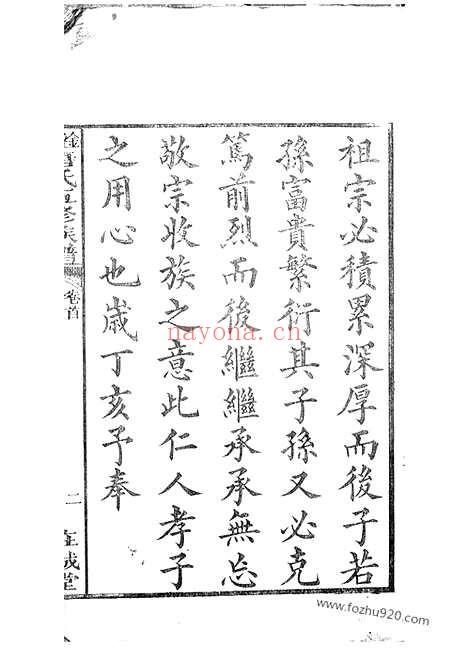 祖宗必積累深厚而後子若
孫富貴繁衍其子孫又必克
篤前烈而後繼繼承承無忘
敬宗收族之意此仁人孝子
之用心也歲丁亥予奉
氏五修族譜
卷首
二
存誠堂
nayona.cn
www.fozhu920.com